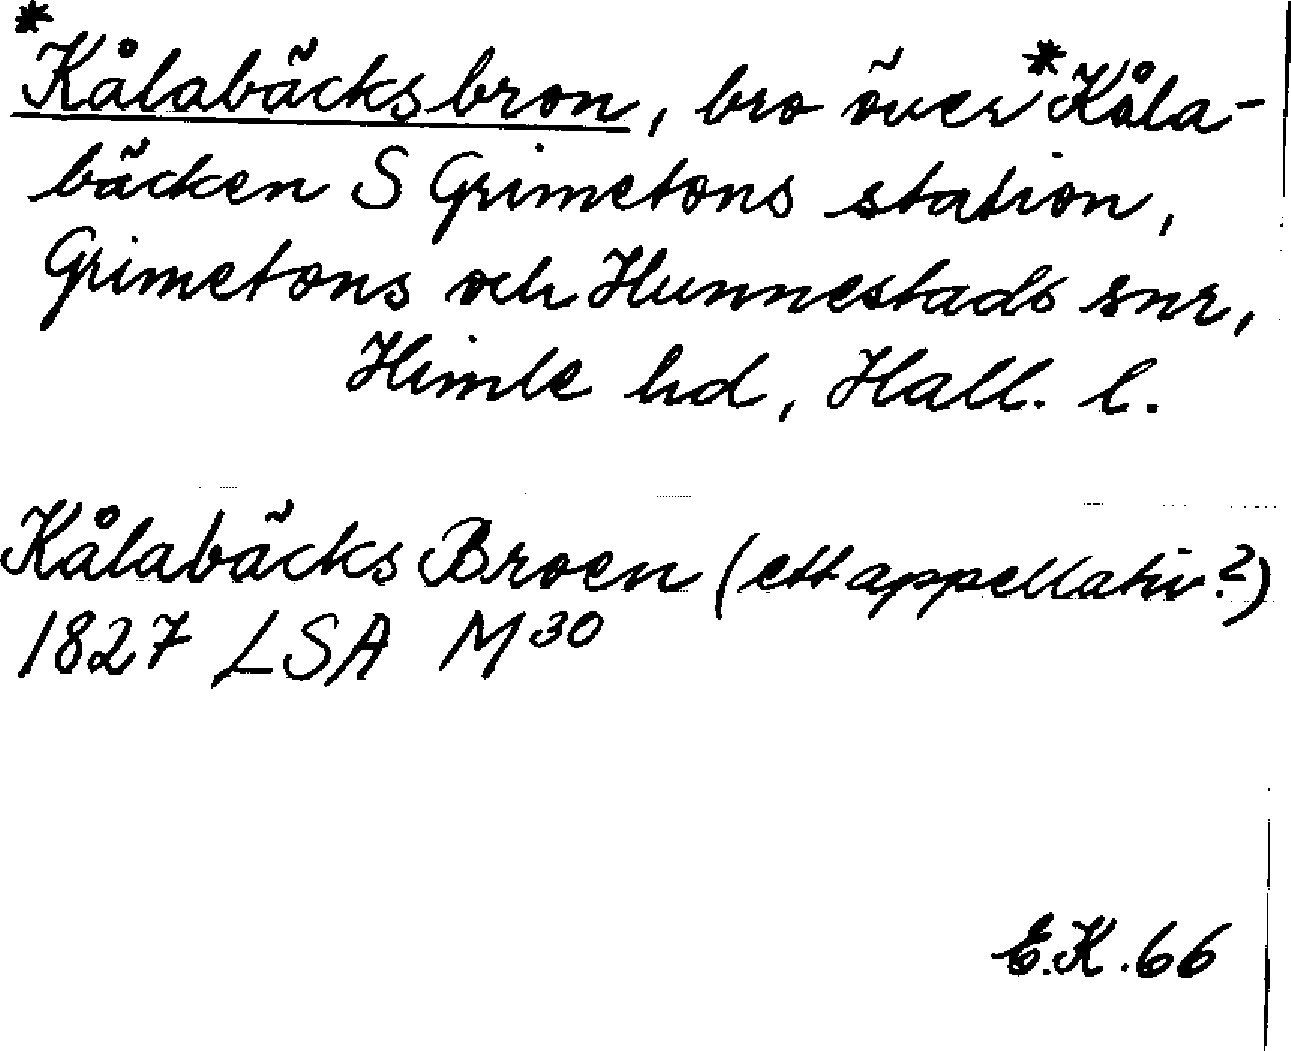 *Kålabäcksbron, bro över *Kåla-
bäcken S Grimetons station,
Grimetons och Hunnestads snr,
Himle hd, Hall. l.
Kålabäcks Broen (ett appellativ?)
1827 LSA M30
E.K. 66